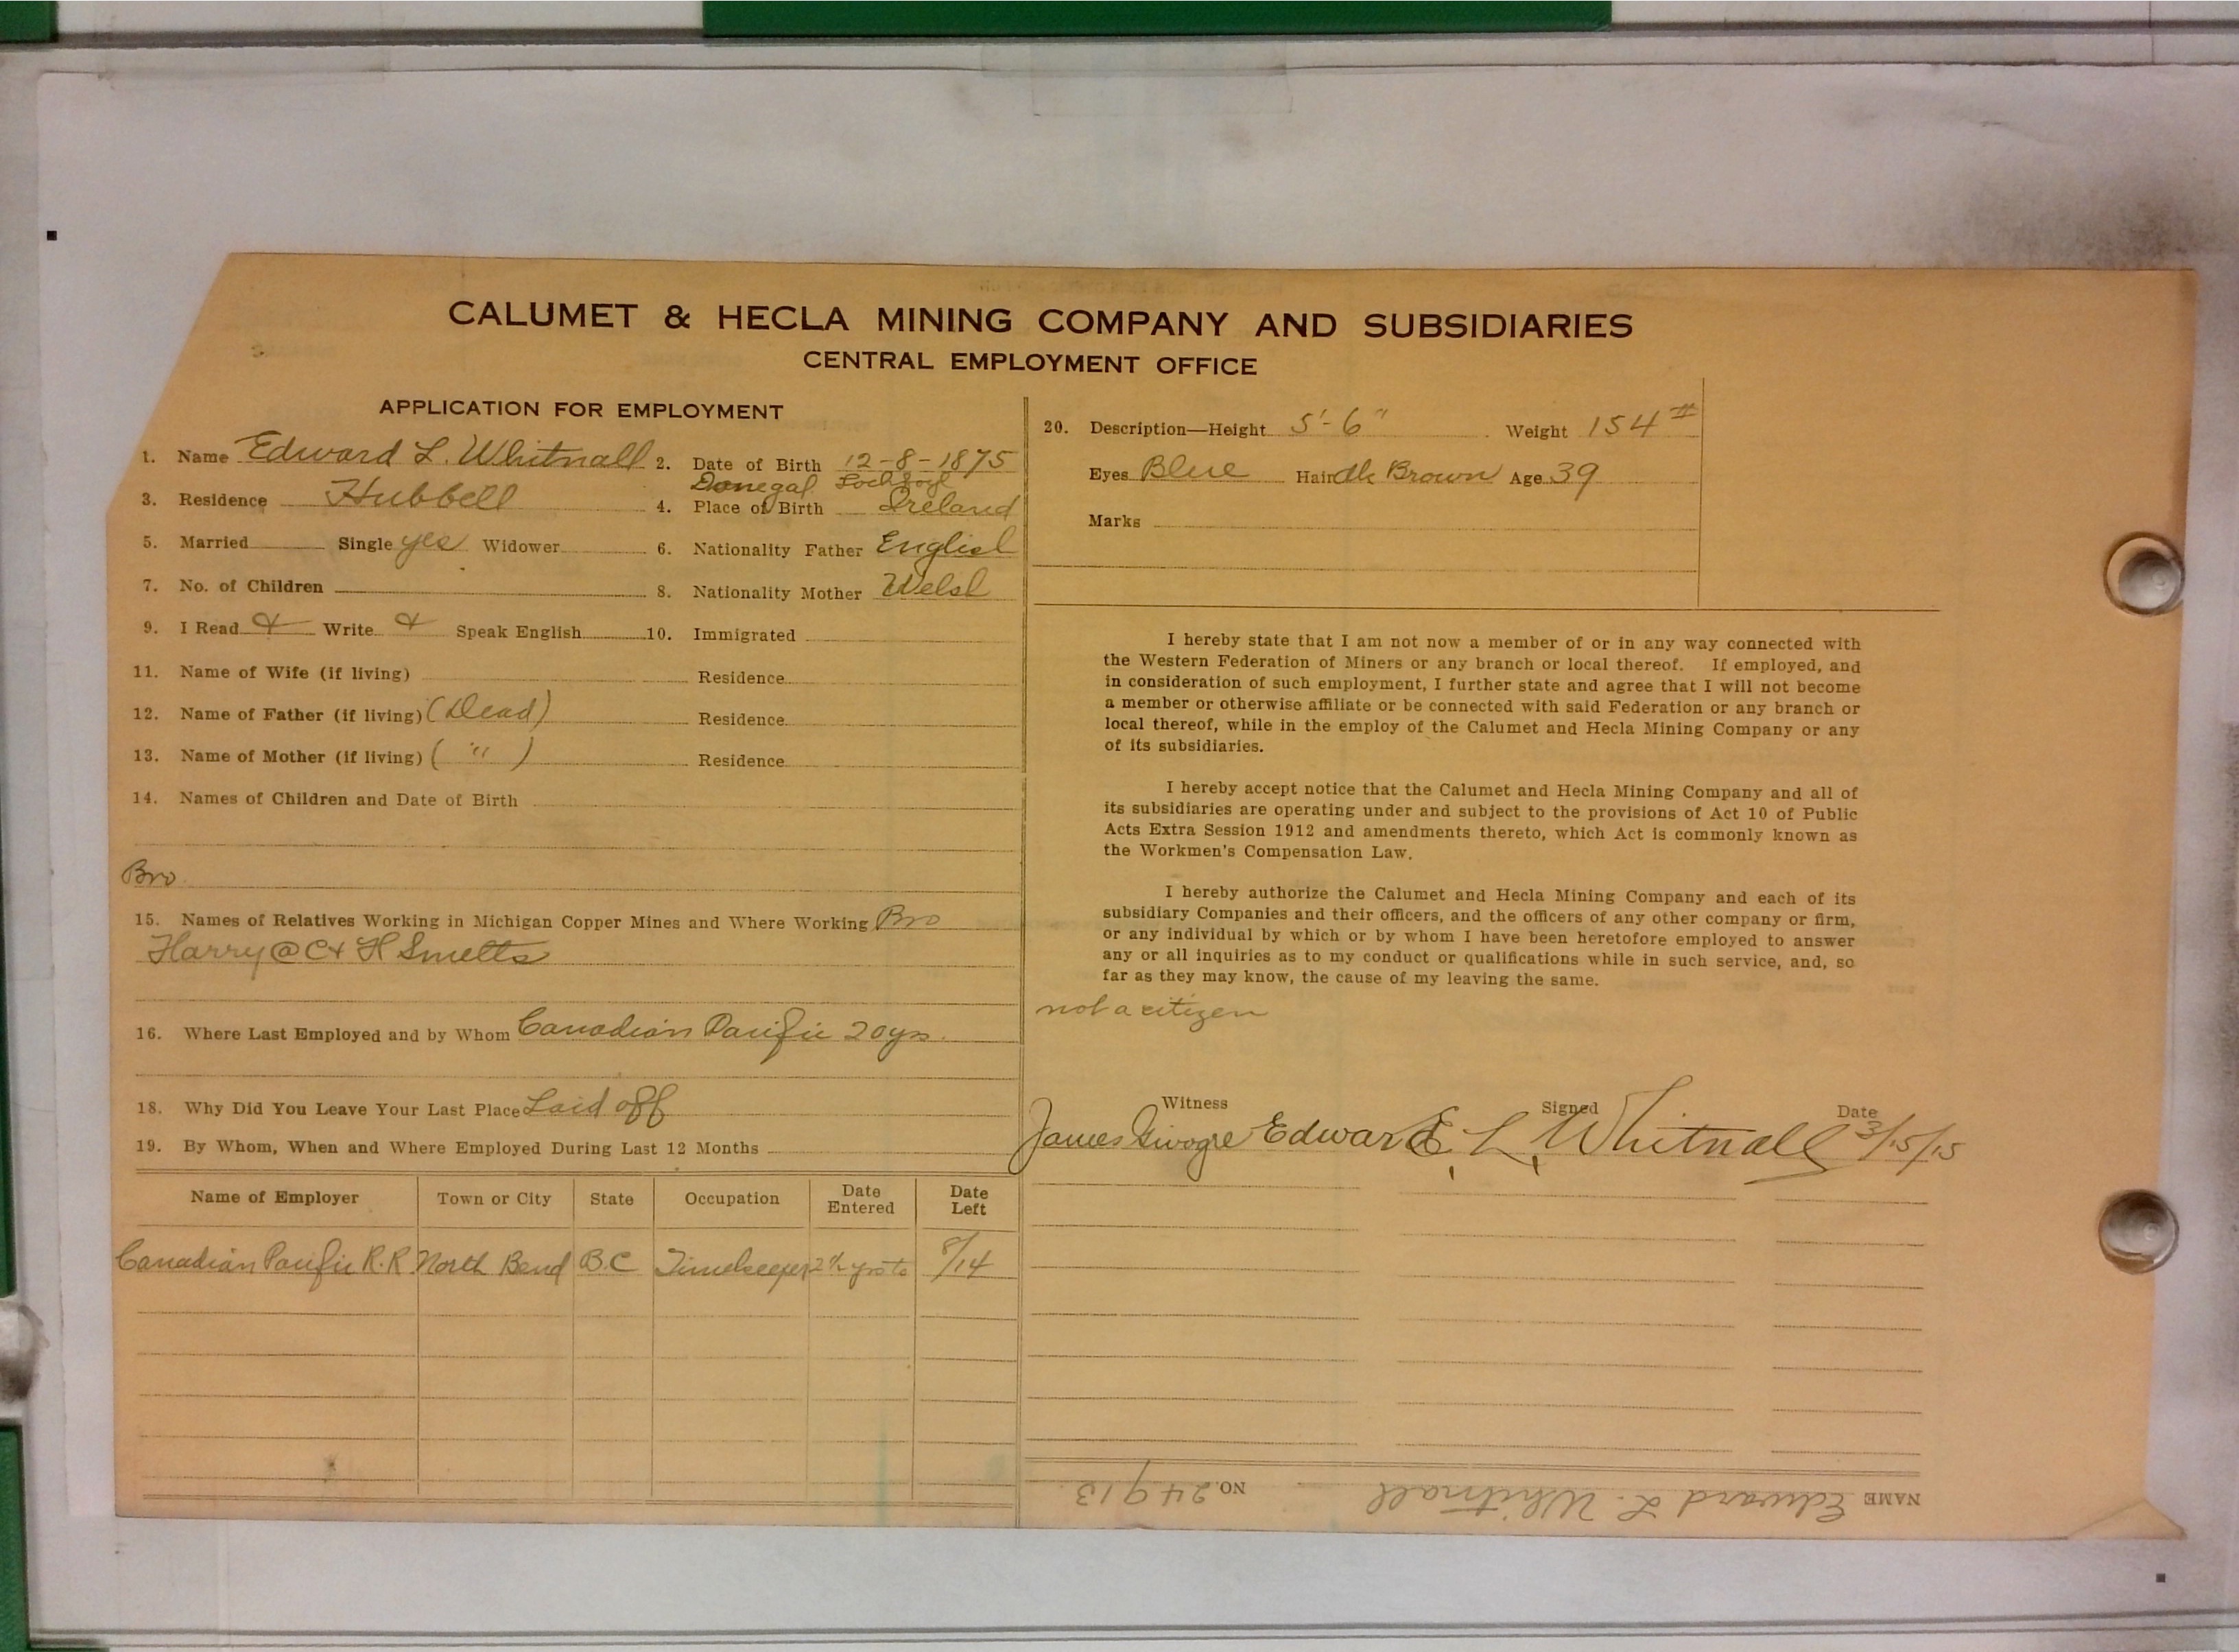 CALUMET & HECLA MINING COMPANY AND SUBSIDIARIES
CENTRAL EMPLOYMENT OFFICE
APPLICATION FOR EMPLOYMENT
1. Name Edward L. Whitnall 2. Date of Birth 12-8-1875
Donegal
3. Residence Hubbell 4. Place of Birth Ireland
5. Married Single yes Widower 6. Nationality Father English
7. No. of Children 8. Nationality Mother Welsh
9. I Read & Write & Speak English 10. Immigrated
11. Name of Wife (if living) Residence
12. Name of Father (if living) (Dead) Residence
13. Name of Mother (if living) ( " ) Residence
14. Names of Children and Date of Birth
Bro
15. Names of Relatives Working in Michigan Copper Mines and Where Working Bro
Harry @ C & H Smelts
16. Where Last Employed and by Whom Canadian Pacific 20 yrs.
18. Why Did You Leave Your Last Place Laid off
19. By Whom, When and Where Employed During Last 12 Months
Name of Employer Town or City State Occupation Date Entered Date Left
Canadian Pacific R.R. North Bend B.C Timekeeper yrs to 8/14
20. Description—Height 5'-6" Weight 154 #
Eyes Blue Hair dk Brown Age 39
Marks
I hereby state that I am not now a member of or in any way connected with
the Western Federation of Miners or any branch or local thereof. If employed, and
in consideration of such employment, I further state and agree that I will not become
a member or otherwise affiliate or be connected with said Federation or any branch or
local thereof, while in the employ of the Calumet and Hecla Mining Company or any
of its subsidiaries.
I hereby accept notice that the Calumet and Hecla Mining Company and all of
its subsidiaries are operating under and subject to the provisions of Act 10 of Public
Acts Extra Session 1912 and amendments thereto, which Act is commonly known as
the Workmen's Compensation Law.
I hereby authorize the Calumet and Hecla Mining Company and each of its
subsidiary Companies and their officers, and the officers of any other company or firm,
or any individual by which or by whom I have been heretofore employed to answer
any or all inquiries as to my conduct or qualifications while in such service, and, so
far as they may know, the cause of my leaving the same.
not a citizen
Witness Signed Date
James Edward E. L. Whitnall 3/15/15
NAME Edward L. Whitnall NO. 24913